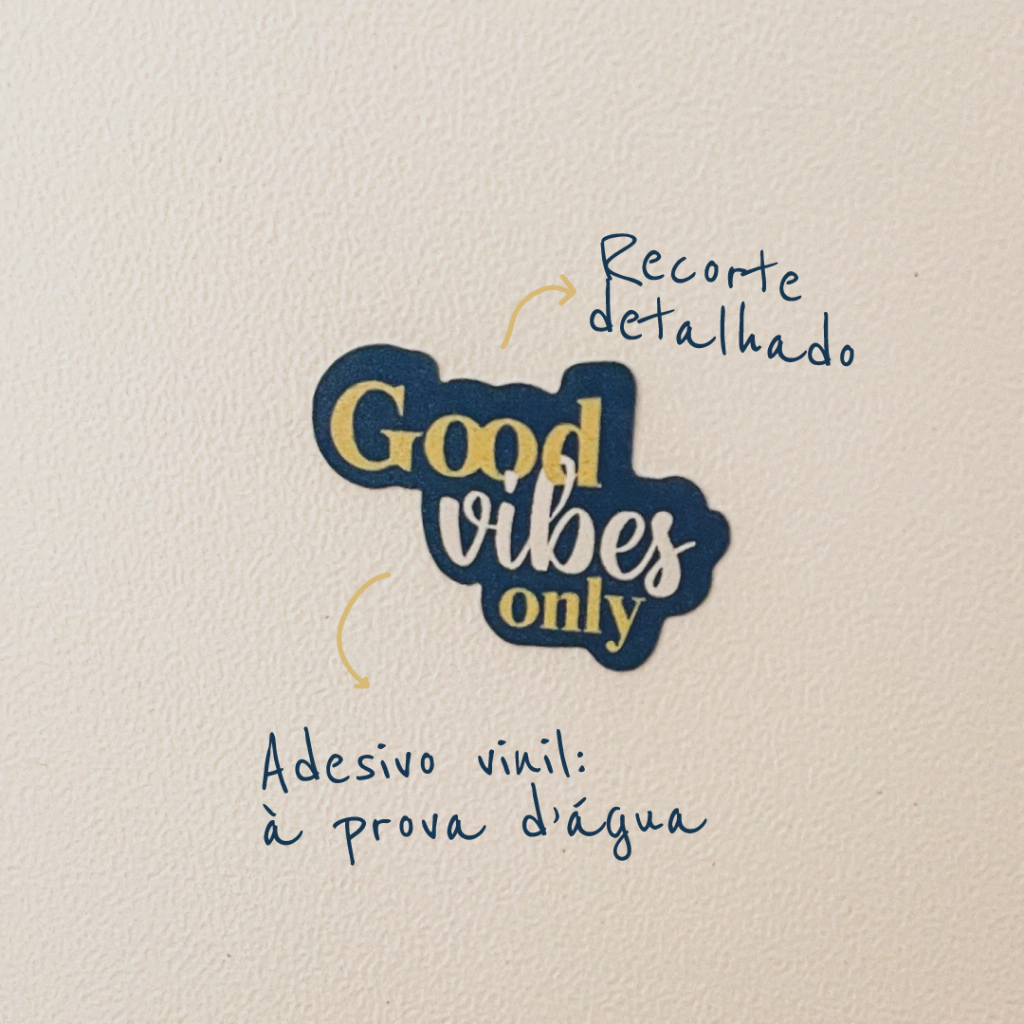 Recorte
detalhado
Good
vibes
only
Adesivo vinil:
à prova d'água